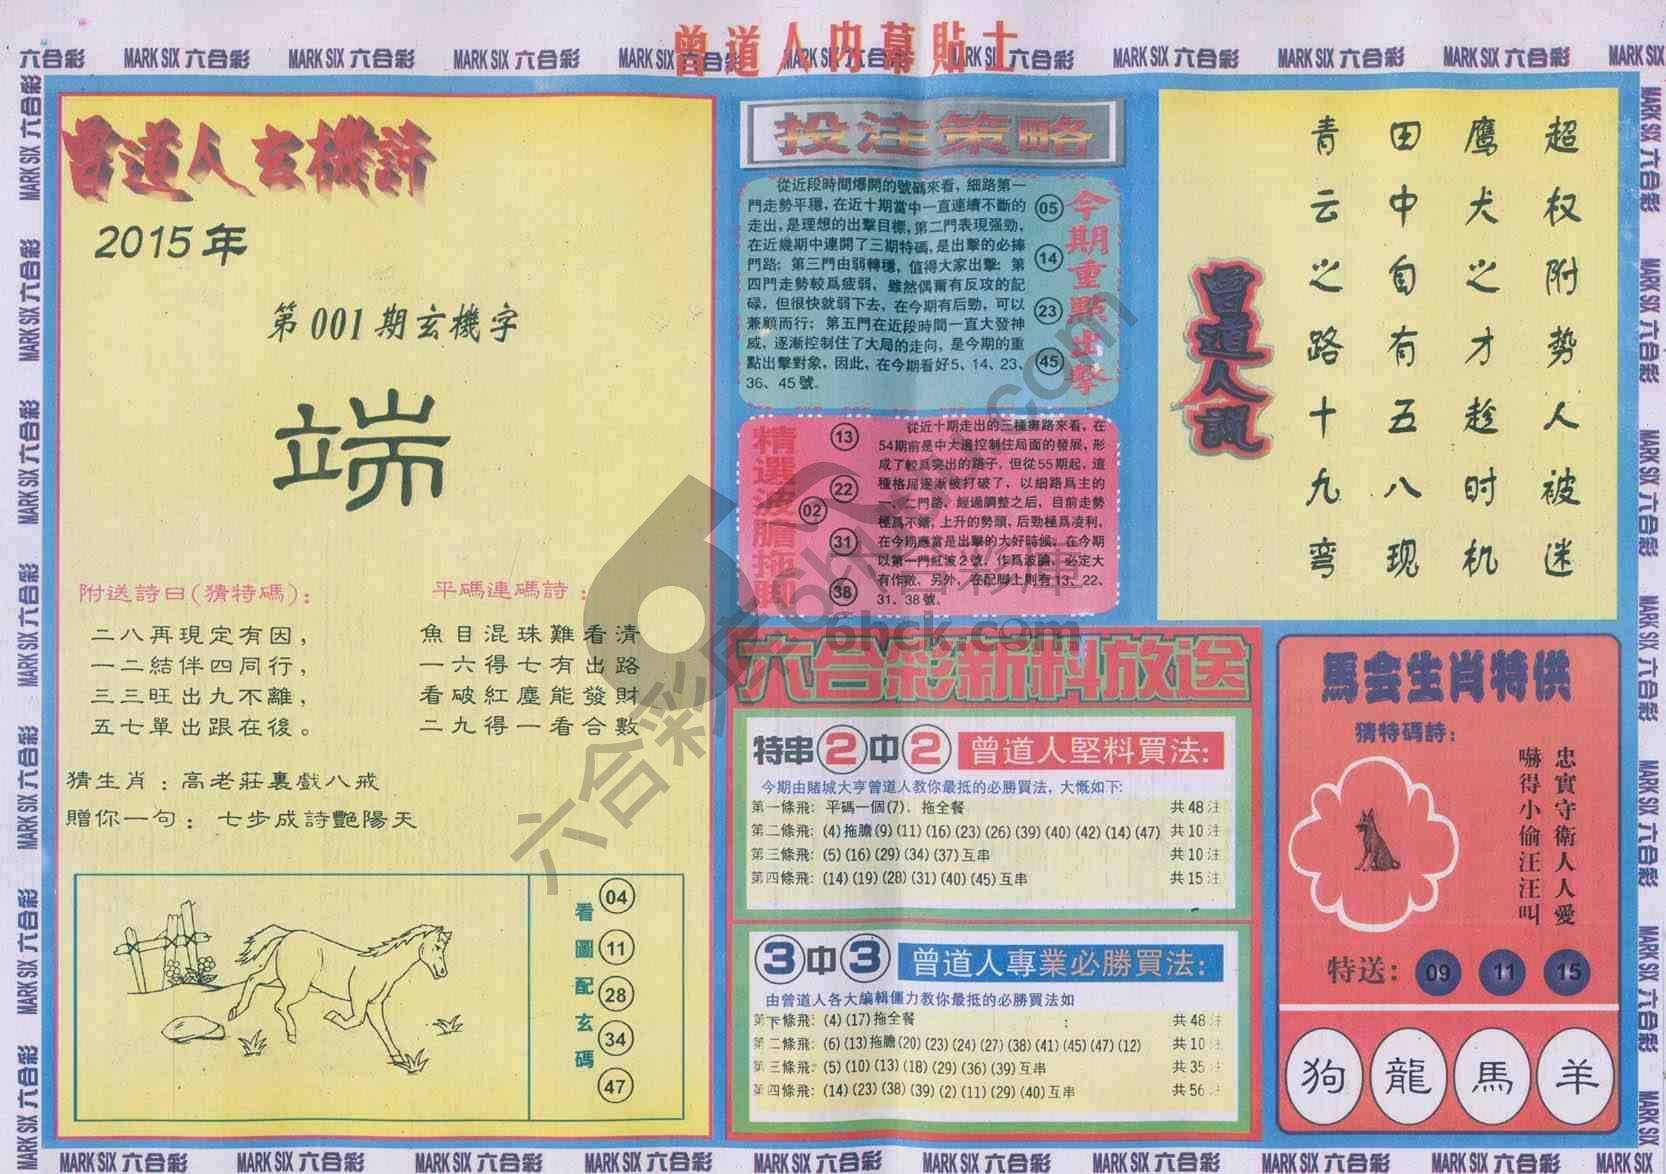 曾道人内幕貼士
六合彩 MARK SIX 六合彩 MARK SIX 六合彩 MARK SIX 六合彩 MARK SIX 六合彩 MARK SIX 六合彩 MARK SIX 六合彩 MARK SIX 六合彩 MARK SIX 六合彩 MARK SIX 六合彩 MARK SIX
曾道人玄機詩
2015年
第001期玄機字
端
附送詩曰(猜特碼)：
二八再現定有因，
一二結伴四同行，
三三旺出九不離，
五七單出跟在後。
平碼連碼詩：
魚目混珠難看清
一六得七有出路
看破紅塵能發財
二九得一看合數
猜生肖：高老莊裏戲八戒
贈你一句：七步成詩艷陽天
看圖配玄碼
04
11
28
34
47
投注策略
從近段時間爆開的號碼來看，細路第一
門走勢平穩，在近十期當中一直連續不斷的
走出，是理想的出擊目標，第二門表現强勁，
在近幾期中連開了三期特碼，是出擊的必捧
門路；第三門由弱轉穩，值得大家出擊；第
四門走勢較爲疲弱，雖然偶爾有反攻的記
碌，但很快就弱下去，在今期有后勁，可以
兼顧而行；第五門在近段時間一直大發神
威，逐漸控制住了大局的走向，是今期的重
點出擊對象，因此，在今期看好5、14、23、
36、45號。
05
14
23
45
今期重點出擊
精選波膽拖脚
13
22
02
31
38
從近十期走出的三種攤路來看，在
54期前是中大邊控制住局面的發展，形
成了較爲突出的路子，但從55期起，這
種格局逐漸被打破了，以細路爲主的
一、二門路，經過調整之后，目前走勢
極爲不錯，上升的勢頭，后勁極爲凌利，
在今期應當是出擊的大好時候，在今期
以第一門紅波2號，作爲波膽，必定大
有作敵，另外，在配脚上則有13、22、
31、38號。
曾道人說
超权附势人被迷
鹰犬之才趁时机
田中自有五八现
青云之路十九弯
六合彩新料放送
特串2中2 曾道人堅料買法：
今期由賭城大亨曾道人教你最抵的必勝買法，大慨如下：
第一條飛：平碼一個(7)、拖全餐 共48注
第二條飛：(4)拖膽(9)(11)(16)(23)(26)(39)(40)(42)(14)(47) 共10注
第三條飛：(5)(16)(29)(34)(37)互串 共10注
第四條飛：(14)(19)(28)(31)(40)(45)互串 共15注
3中3 曾道人專業必勝買法：
由曾道人各大編輯僵力教你最抵的必勝買法如
第下條飛：(4)(17)拖全餐 ： 共48注
第二條飛：(6)(13)拖膽(20)(23)(24)(27)(38)(41)(45)(47)(12) 共10注
第三條飛：(5)(10)(13)(18)(29)(36)(39)互串 共35注
第四條飛：(14)(23)(38)(39)(2)(11)(29)(40)互串 共56注
馬会生肖特供
猜特碼詩：
忠實守衛人人愛
嚇得小偷汪汪叫
特送：09 11 15
狗 龍 馬 羊
六合彩庫 6hck.com
六合彩庫
6hck.com
MARK SIX 六合彩 MARK SIX 六合彩 MARK SIX 六合彩 MARK SIX 六合彩 MARK SIX 六合彩 MARK SIX 六合彩 MARK SIX 六合彩 MARK SIX 六合彩 MARK SIX 六合彩 MARK SIX